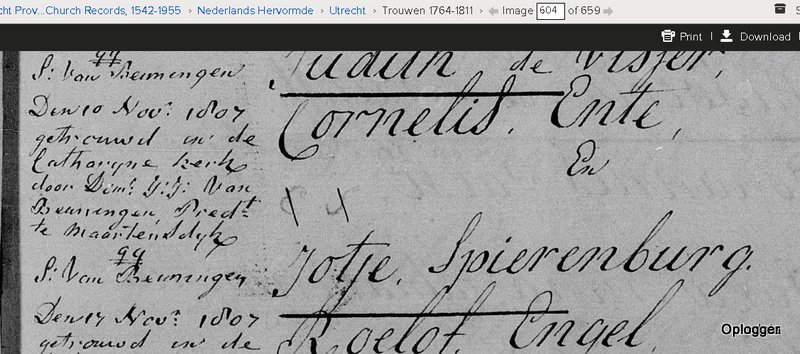 cht Prov...Church Records, 1542-1955 › Nederlands Hervormde › Utrecht › Trouwen 1764-1811 › Image 604 of 659
Print Download
S: Van Beuningen
Judith de Visser,
Den 10 Novr. 1807
getrouwd in de
Catharyne kerk
door Domr. G:J: Van
Beuningen, Predt
te Maartensdyk
gg
S: Van Beuningen
Cornelis, Ente,
En
Jotje, Spierenburg.
Den 17 Novr. 1807
getrouwd in de
Roelof, Engel,
Oplogger